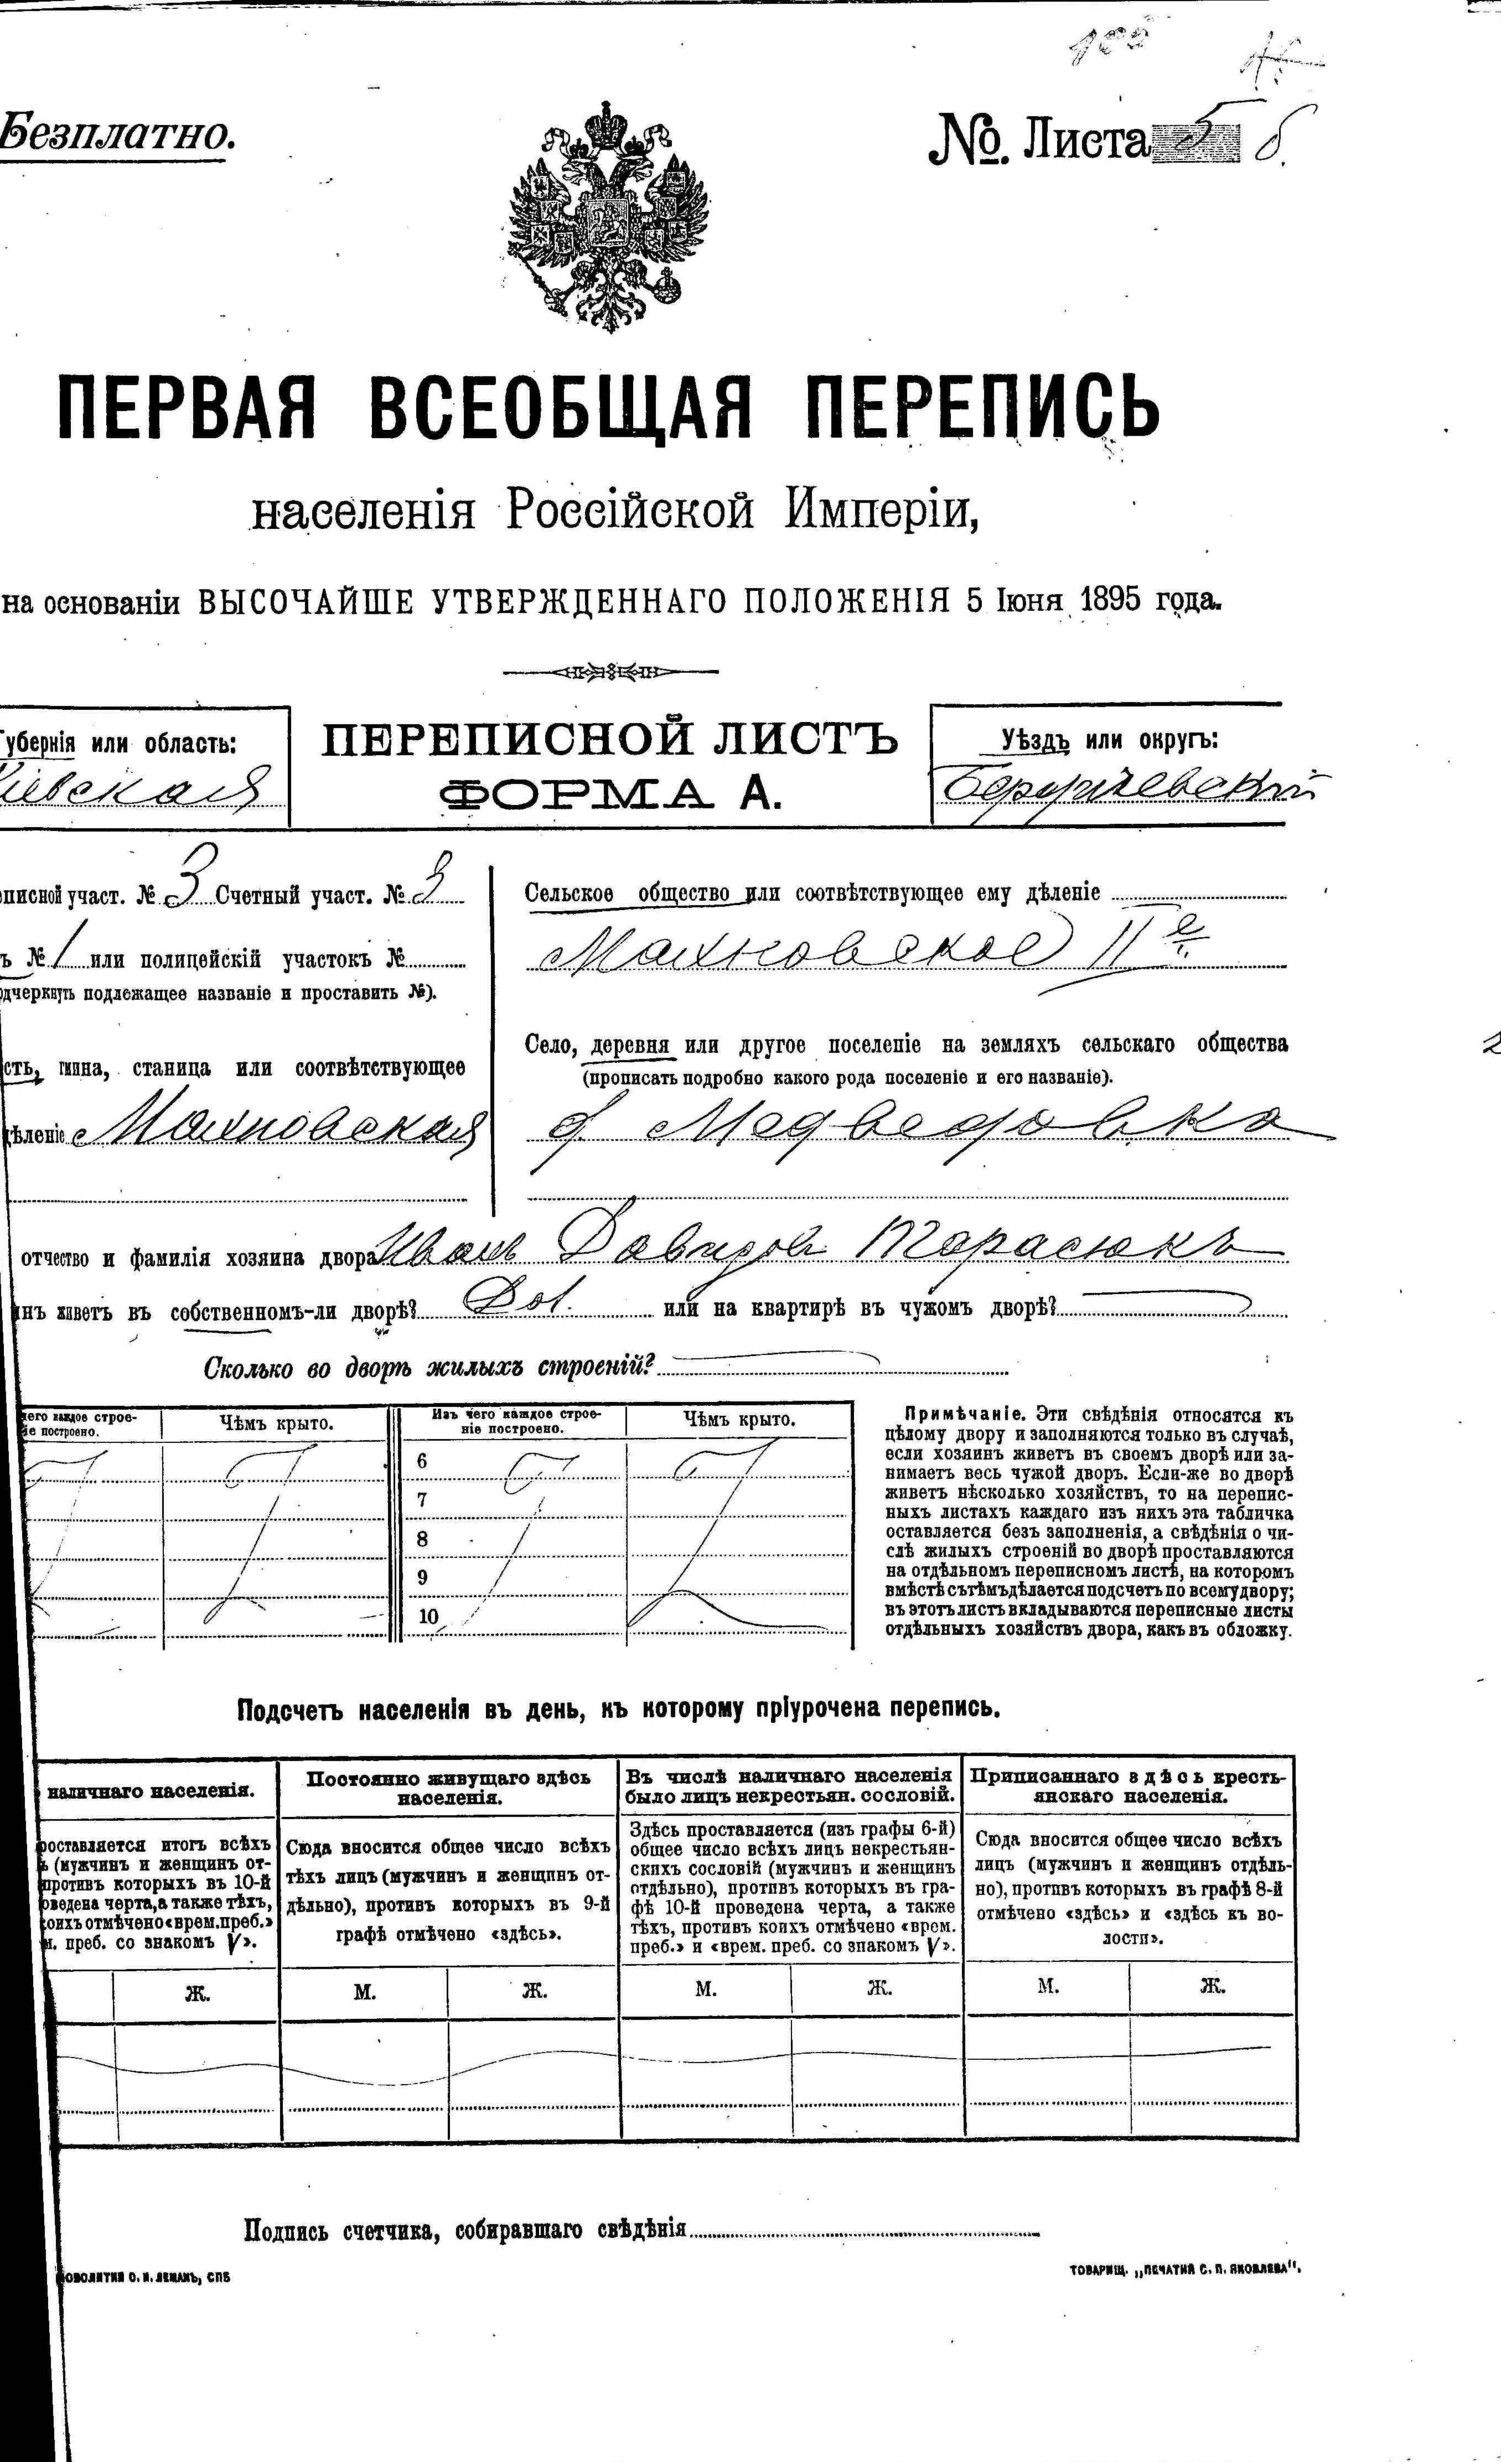 Безплатно.
№ Листа 5 б.
ПЕРВАЯ ВСЕОБЩАЯ ПЕРЕПИСЬ
населенія Россійской Имперіи,
на основаніи ВЫСОЧАЙШЕ УТВЕРЖДЕННАГО ПОЛОЖЕНІЯ 5 Іюня 1895 года.
губернія или область:
Кіевская
ПЕРЕПИСНОЙ ЛИСТЪ
ФОРМА А.
Уѣздъ или округъ:
Бердичевскій
писной участ. № 3 Счетный участ. № 3
ъ № 1 или полицейскій участокъ №
одчеркнуть подлежащее названіе и проставить №).
сть, гмина, станица или соотвѣтствующее
дѣленіе Махновская
Сельское общество или соотвѣтствующее ему дѣленіе
Махновское II е
Село, деревня или другое поселеніе на земляхъ сельскаго общества
(прописать подробно какого рода поселеніе и его названіе).
д. Медведовка
отчество и фамилія хозяина двора Иванъ Давидовъ Тарасюкъ
инъ живетъ въ собственномъ-ли дворѣ? Да. или на квартирѣ въ чужомъ дворѣ?
Сколько во дворѣ жилыхъ строеній?
чего каждое строе-
іе построено.
Чѣмъ крыто.
Изъ чего каждое строе-
ніе построено.
Чѣмъ крыто.
6
7
8
9
10
Примѣчаніе. Эти свѣдѣнія относятся къ
цѣлому двору и заполняются только въ случаѣ,
если хозяинъ живетъ въ своемъ дворѣ или за-
нимаетъ весь чужой дворъ. Если-же во дворѣ
живетъ нѣсколько хозяйствъ, то на перепис-
ныхъ листахъ каждаго изъ нихъ эта табличка
оставляется безъ заполненія, а свѣдѣнія о чи-
слѣ жилыхъ строеній во дворѣ проставляются
на отдѣльномъ переписномъ листѣ, на которомъ
вмѣстѣ съ тѣмъ дѣлается подсчетъ по всему двору;
въ этотъ листъ вкладываются переписные листы
отдѣльныхъ хозяйствъ двора, какъ въ обложку.
Подсчетъ населенія въ день, къ которому пріурочена перепись.
наличнаго населенія.
роставляется итогъ всѣхъ
ъ (мужчинъ и женщинъ от-
противъ которыхъ въ 10-й
оведена черта, а также тѣхъ,
коихъ отмѣчено «врем. преб.»
м. преб. со знакомъ V».
Ж.
Постоянно живущаго здѣсь
населенія.
Сюда вносится общее число всѣхъ
тѣхъ лицъ (мужчинъ и женщинъ от-
дѣльно), противъ которыхъ въ 9-й
графѣ отмѣчено «здѣсь».
М. Ж.
Въ числѣ наличнаго населенія
было лицъ некрестьян. сословій.
Здѣсь проставляется (изъ графы 6-й)
общее число всѣхъ лицъ некрестьян-
скихъ сословій (мужчинъ и женщинъ
отдѣльно), противъ которыхъ въ гра-
фѣ 10-й проведена черта, а также
тѣхъ, противъ коихъ отмѣчено «врем.
преб.» и «врем. преб. со знакомъ V».
М. Ж.
Приписаннаго здѣсь кресть-
янскаго населенія.
Сюда вносится общее число всѣхъ
лицъ (мужчинъ и женщинъ отдѣль-
но), противъ которыхъ въ графѣ 8-й
отмѣчено «здѣсь» и «здѣсь къ во-
лости».
М. Ж.
Подпись счетчика, собиравшаго свѣдѣнія
оволитія О. И. Леманъ, СПБ
ТОВАРИЩ. „ПЕЧАТНЯ С. П. ЯКОВЛЕВА".